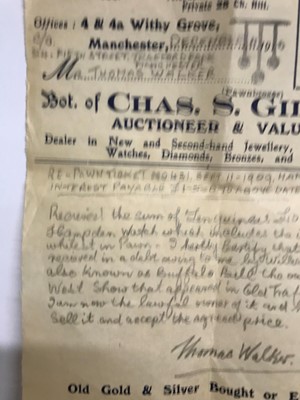 Private 28 Ch. Hill.
Offices: 4 & 4a Withy Grove,
Manchester,
MR THOMAS WALKER
(Pawnbroker)
Bot. of CHAS. S. GI
AUCTIONEER & VALU
Dealer in New and Second-hand Jewellery,
Watches, Diamonds, Bronzes, and
RE-PAWN TICKET NO SEPT 11-1909,
INTEREST PAYABLE TO ABOVE DATE
Received the sum of Ten guineas
Hampden watch which includes the
whilst in Pawn- I hereby certify that
received in a debt owing to me by
also Known as Buffalo Bill the
West Show that appeared in Old Traf
I am now the lawful owner of it and
Sell it and accept the agreed price.
Thomas Walker.
Old Gold & Silver Bought or E